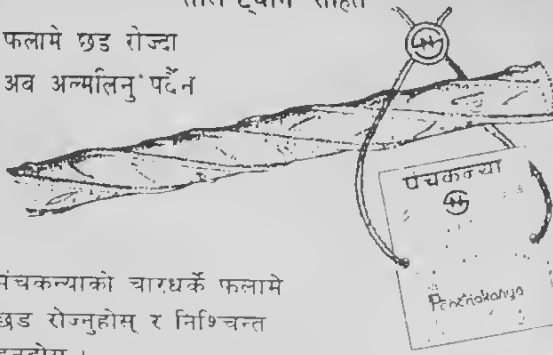 फलामे छड रोज्दा
अब अल्मलिनु पर्दैन
पंचकन्या
Panchakanya
पंचकन्याको चारधर्के फलामे
छड रोज्नुहोस् र निश्चिन्त
हुनुहोस् ।